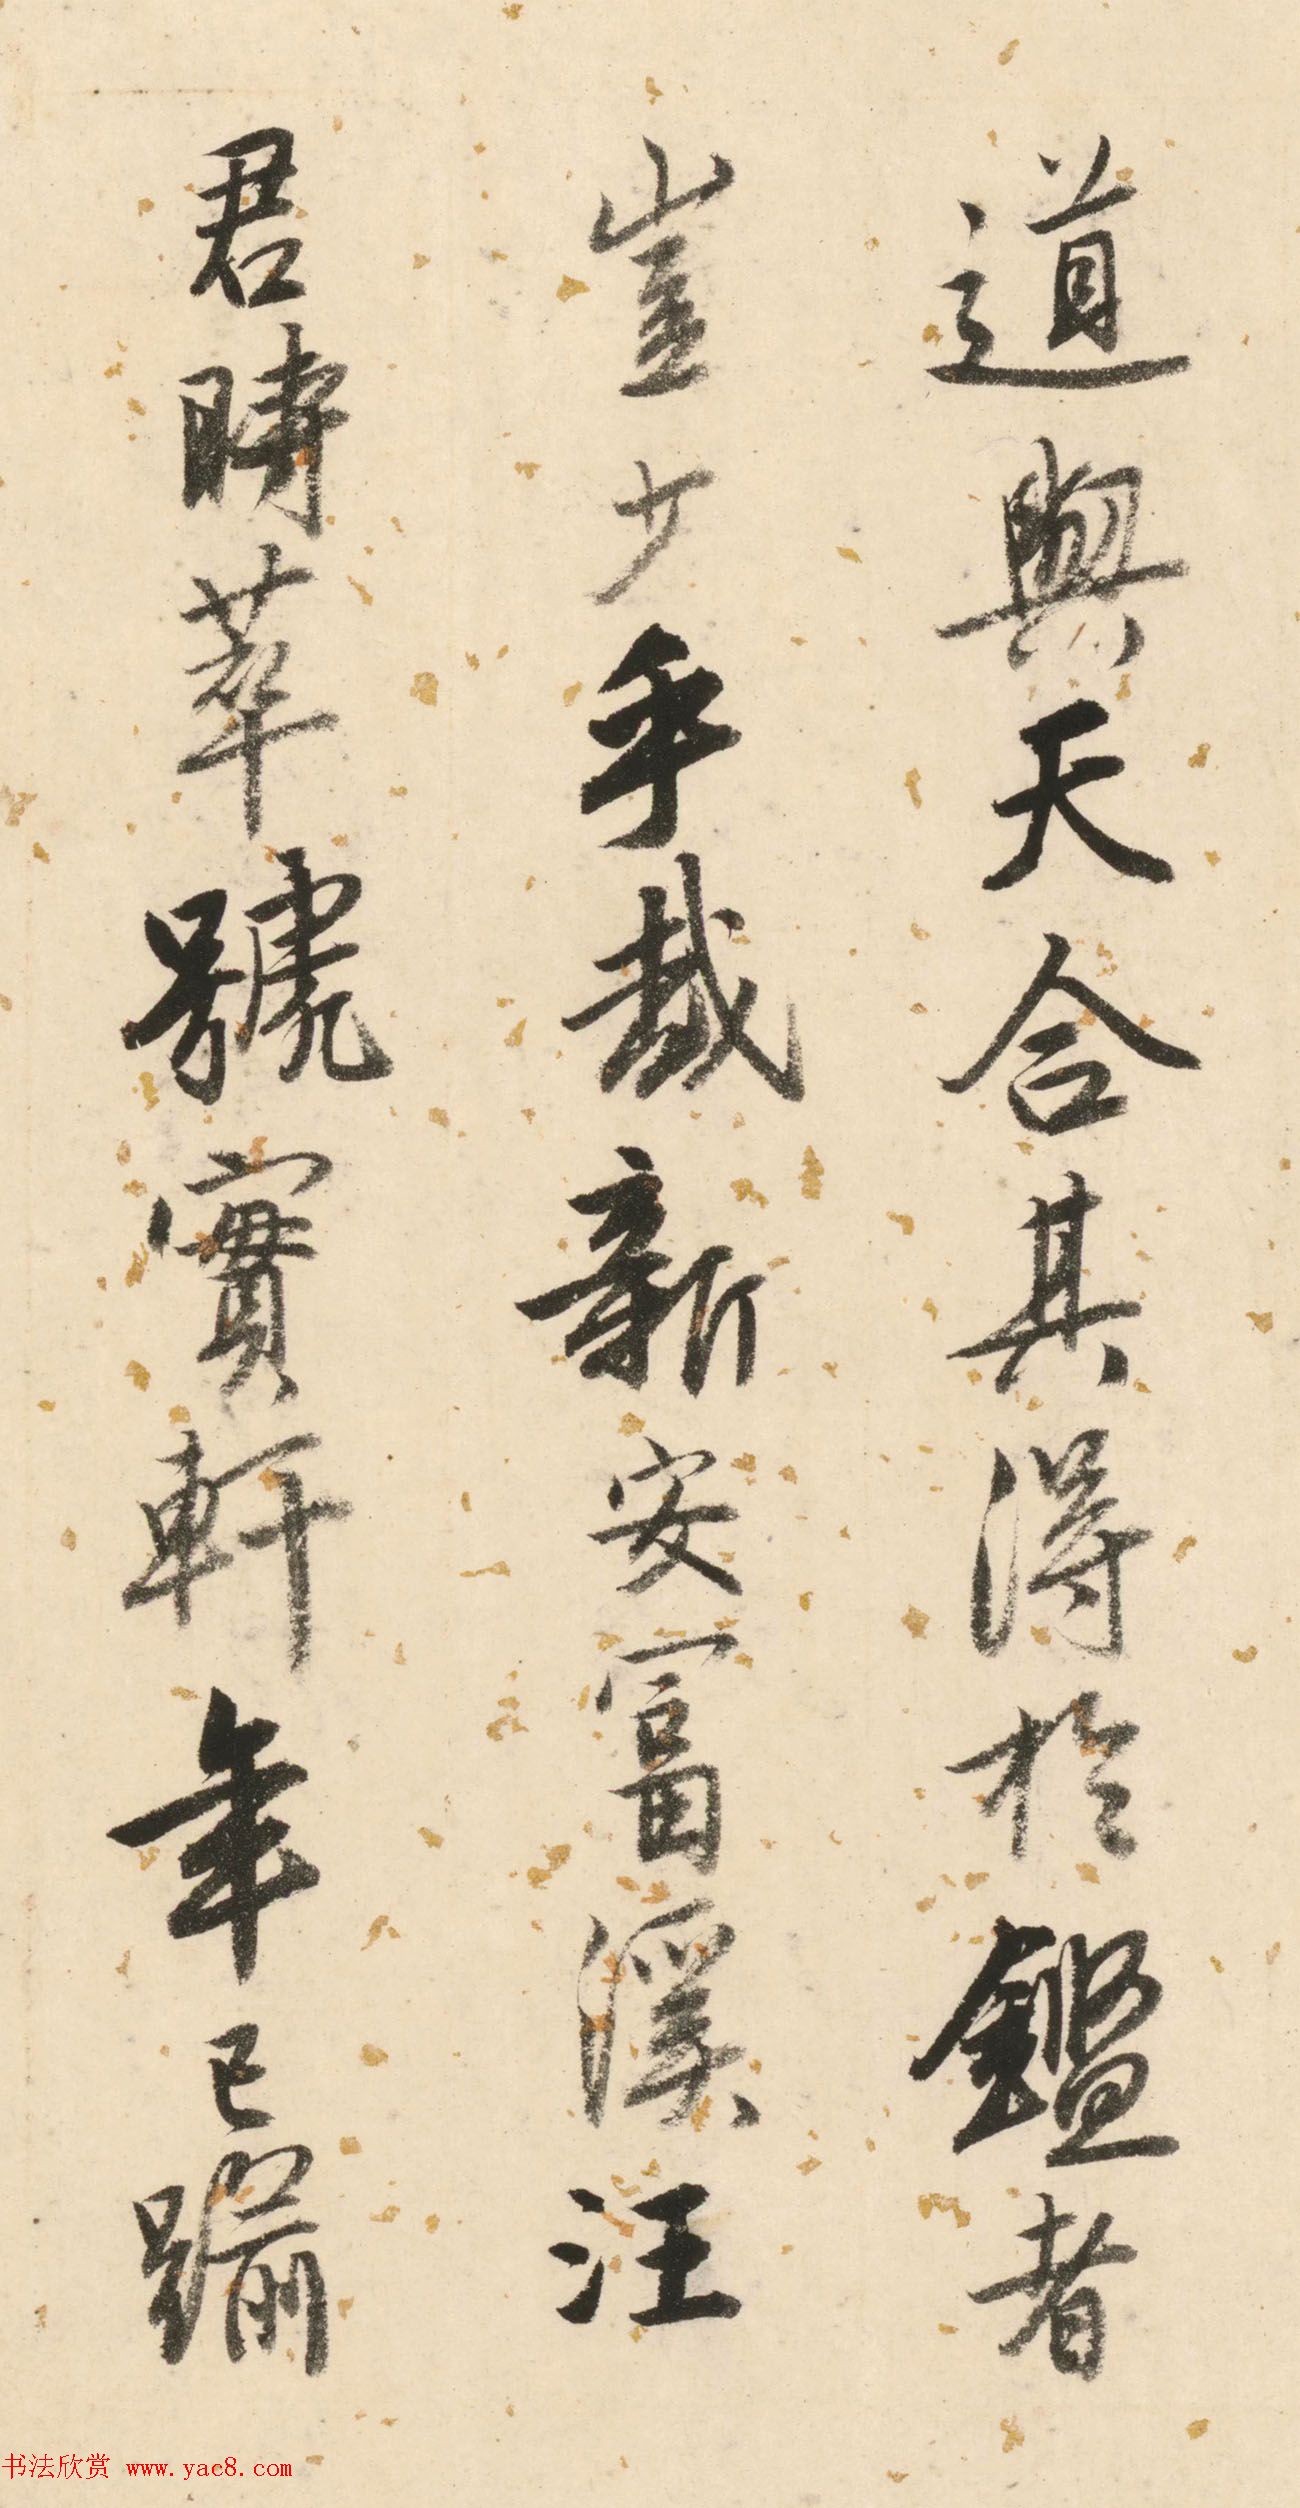 道與天合其得於鑑者
豈少乎哉新安富溪汪
君時萃號實軒年已躋
书法欣赏 www.yac8.com